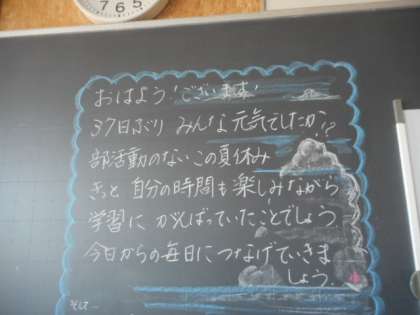 7 6 5
おはよう!ございます!
37日ぶり みんな元気でしたか!?
部活動のないこの夏休み
きっと 自分の時間も楽しみながら
学習に がんばっていたことでしょう。
今日からの毎日につなげていきま
しょう。
そして…